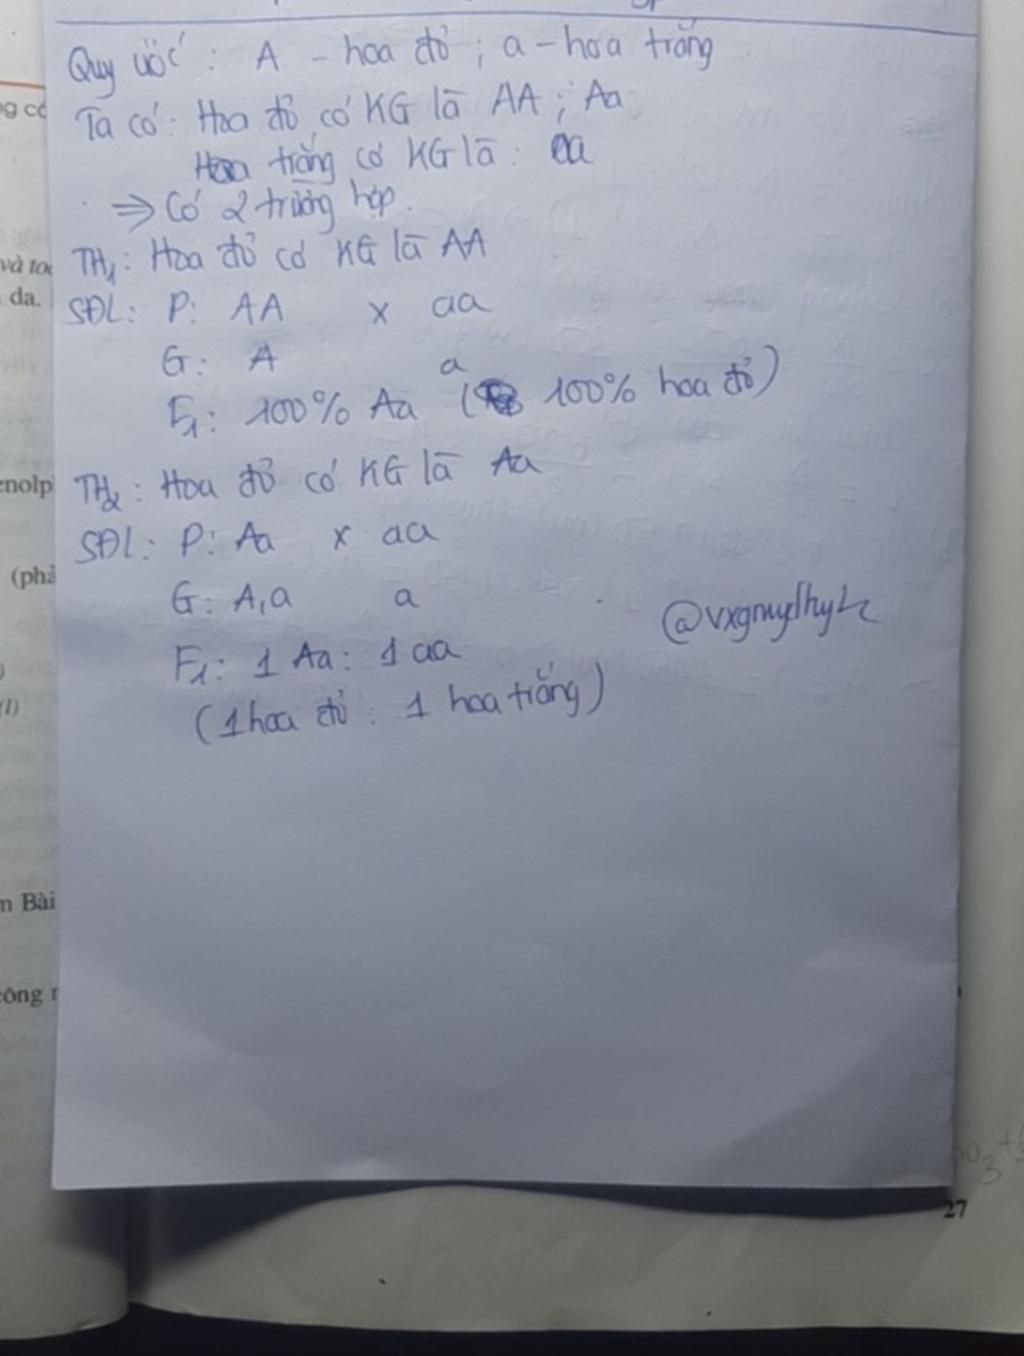 Quy ước: A - hoa đỏ; a - hoa trắng
Ta có: Hoa đỏ có KG là AA; Aa
Hoa trắng có KG là: aa
⇒ Có 2 trường hợp.
TH1: Hoa đỏ có KG là AA
SĐL: P: AA x aa
G: A a
F1: 100% Aa (100% hoa đỏ)
TH2: Hoa đỏ có KG là Aa
SĐL: P: Aa x aa
G: A, a a
F1: 1 Aa : 1 aa
(1 hoa đỏ : 1 hoa trắng)
và
da.
enolp
(phả
(l)
m Bài
công
27